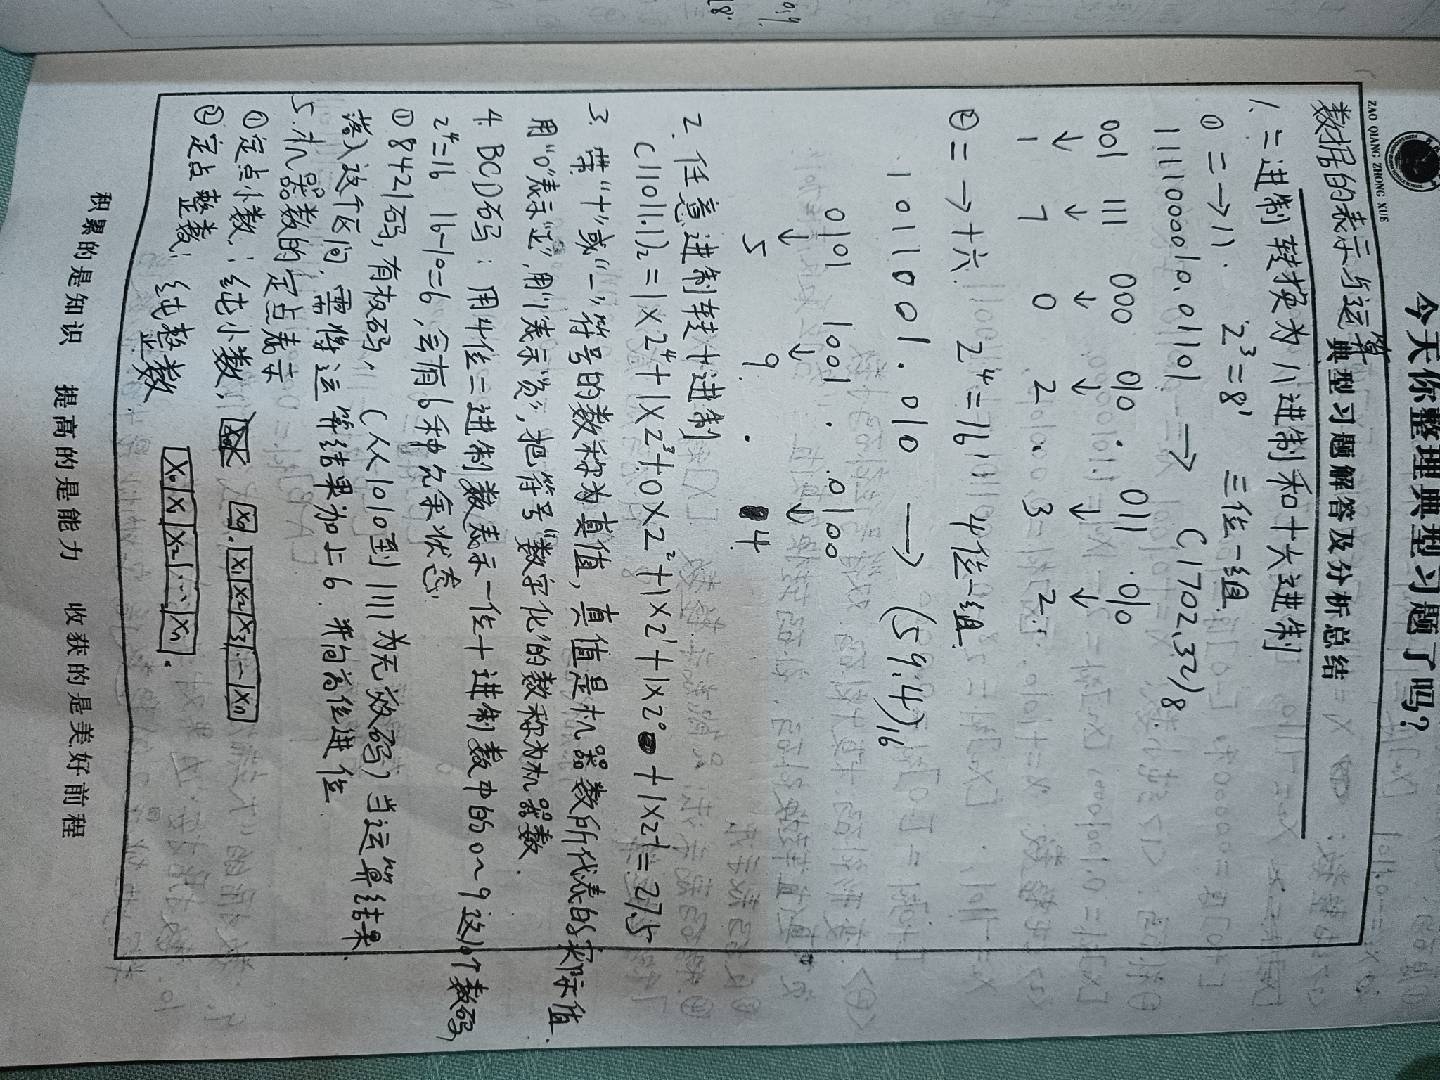 今天你整理典型习题了吗?
ZAO QIANG ZHONG XUE
数据的表示与运算
典型习题解答及分析总结
1. 二进制转换为八进制和十六进制
① 二→八. 2³=8¹ 三位一组.
1111000010.01101 → (1702.32)₈
001 111 000 010 . 011 010
↓ ↓ ↓ ↓ ↓ ↓
1 7 0 2 . 3 2
② 二→十六. 2⁴=16¹ 4位一组.
1011001.010 → (59.4)₁₆
0101 1001 . 0100
↓ ↓ ↓
5 9 . 4
2. 任意进制转十进制
(11011.1)₂=1×2⁴+1×2³+0×2²+1×2¹+1×2⁰+1×2⁻¹=27.5
3. 带“+”或“-”符号的数称为真值,真值是机器数所代表的实际值.
用“0”表示“正”,用“1”表示“负”,把符号“数字化”的数称为机器数.
4. BCD码:用4位二进制数表示一位十进制数中的0~9这10个数码,
2⁴=16 16-10=6,会有6种冗余状态.
①8421码,有权码,(从1010到1111为无效码)当运算结果
落入这个区间,需将运算结果加上6.并向高位进位
5.机器数的定点表示
①定点小数:纯小数, X₀. X₁ X₂ X₃ ... Xn
②定点整数:纯整数 X₀ X₁ X₂ ... Xn .
积累的是知识 提高的是能力 收获的是美好前程